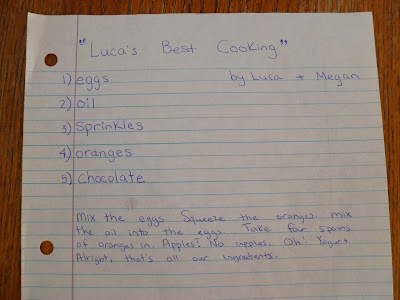 "Luca's Best Cooking"
by Luca + Megan
1) eggs
2) oil
3) Sprinkles
4) oranges
5) Chocolate
Mix the eggs. Squeeze the oranges. mix
the oil into the eggs. Take four spoons
of oranges in. Apples? No apples. Oh! Yogurt.
Alright, that's all our ingredients.